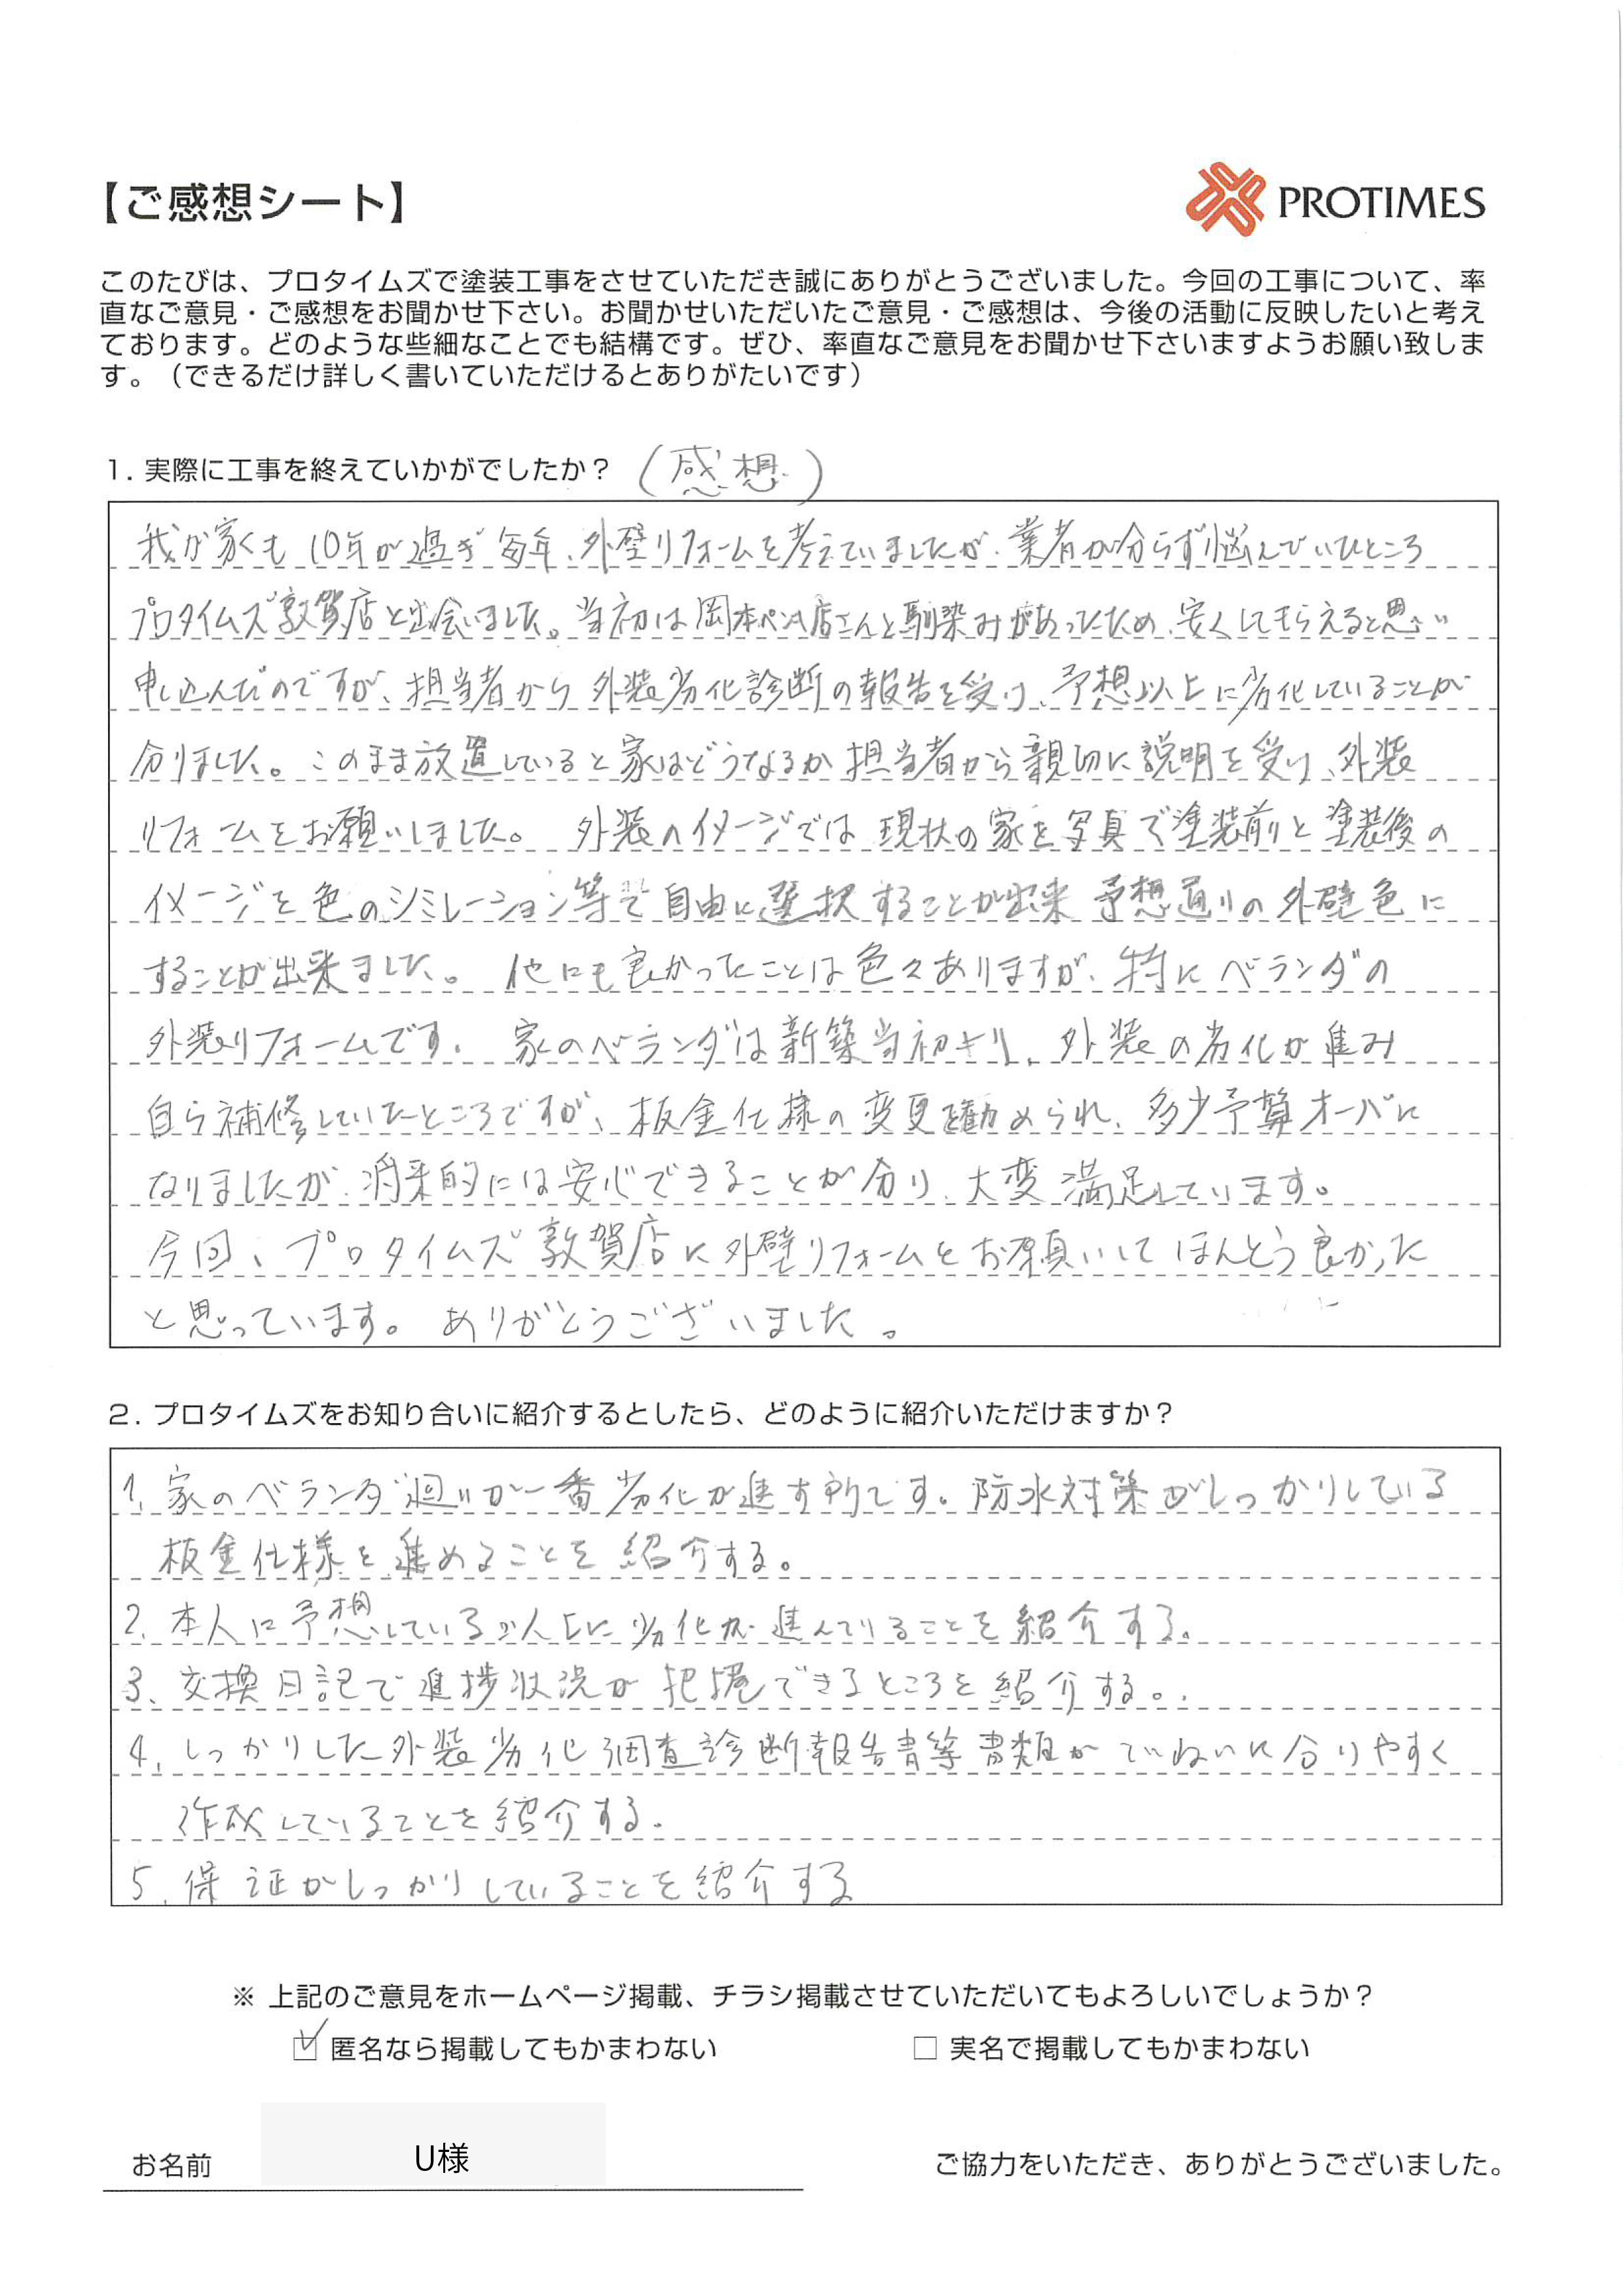 【ご感想シート】
PROTIMES
このたびは、プロタイムズで塗装工事をさせていただき誠にありがとうございました。今回の工事について、率
直なご意見・ご感想をお聞かせ下さい。お聞かせいただいたご意見・ご感想は、今後の活動に反映したいと考え
ております。どのような些細なことでも結構です。ぜひ、率直なご意見をお聞かせ下さいますようお願い致しま
す。（できるだけ詳しく書いていただけるとありがたいです）
1. 実際に工事を終えていかがでしたか？（感想）
我が家くも10年が過ぎ毎年、外壁リフォームを考えていましたが、業者が分らず悩んでいたところ
プロタイムズ敦賀店と出会いました。当初は岡本ペンキ店さんと馴染みがあったため、安くしてもらえると思い
申し込んだのですが、担当者から外装劣化診断の報告を受け、予想以上に劣化していることが
分りました。このまま放置していると家はどうなるか担当者から親切に説明を受け、外装
リフォームをお願いしました。外装のイメージでは現状の家を写真で塗装前と塗装後の
イメージを色のシミレーション等で自由に選択することが出来予想通りの外壁色に
することが出来ました。他にも良かったことは色々ありますが、特にベランダの
外装リフォームです。家のベランダは新築当初より、外装の劣化が進み
自ら補修していたところですが、板金仕様の変更を勧められ、多少予算オーバに
なりましたが、将来的には安心できることが分り、大変満足しています。
今回、プロタイムズ敦賀店に外壁リフォームをお願いしてほんとう良かった
と思っています。ありがとうございました。
2. プロタイムズをお知り合いに紹介するとしたら、どのように紹介いただけますか？
1. 家のベランダ廻りが一番劣化が進む所です。防水対策がしっかりしている
板金仕様を進めることを紹介する。
2. 本人に予想している以上に劣化が進んでいることを紹介する。
3. 交換日記で進捗状況が把握できるところを紹介する。
4. しっかりした外装劣化調査診断報告書等書類がていねいに分りやすく
作成していることを紹介する。
5. 保証がしっかりしていることを紹介する
※ 上記のご意見をホームページ掲載、チラシ掲載させていただいてもよろしいでしょうか？
☑ 匿名なら掲載してもかまわない　□ 実名で掲載してもかまわない
お名前　U様　ご協力をいただき、ありがとうございました。